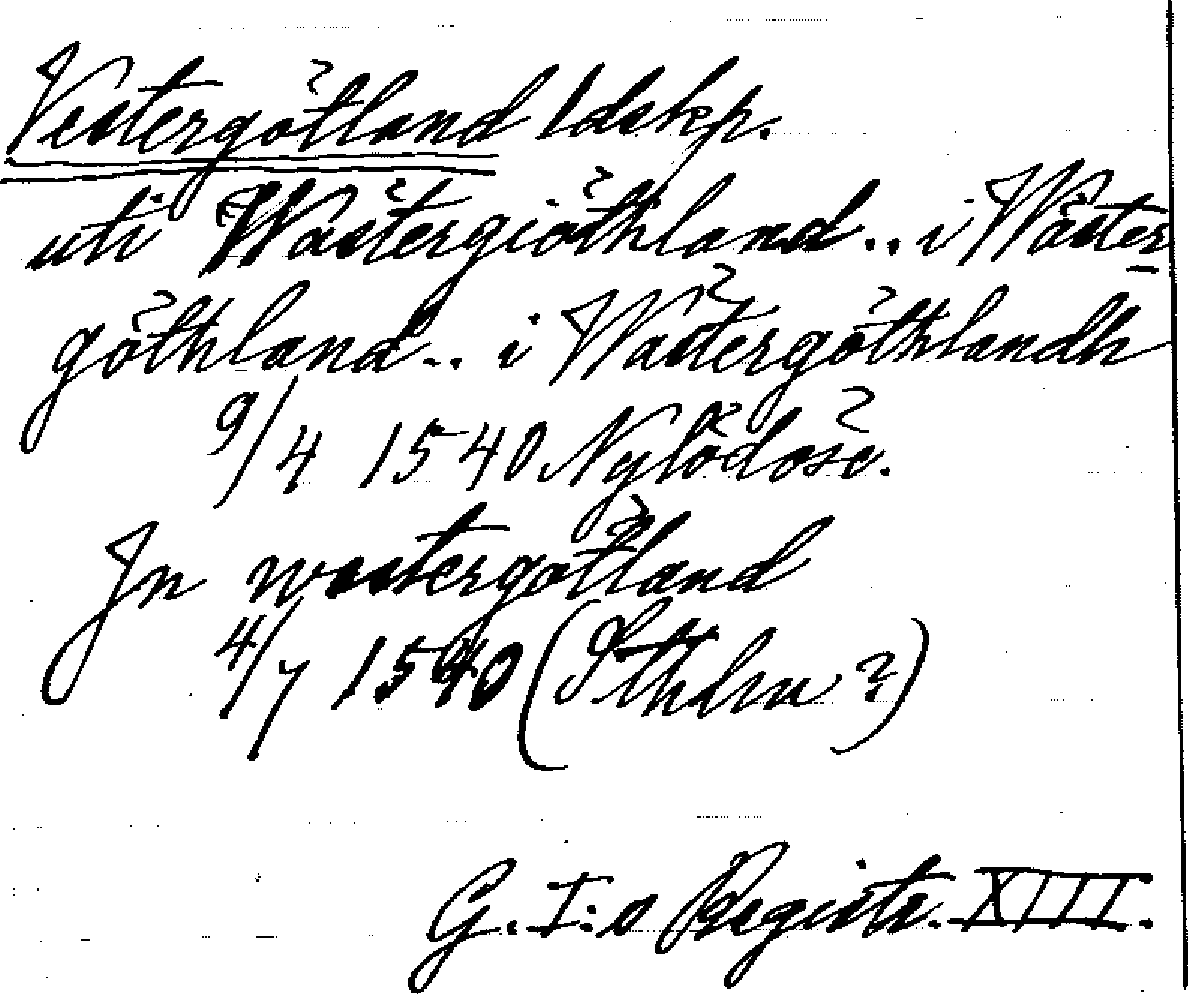 Vestergötland ldskp.
uti Wästergiöthland.. i Wäster-
göthland.. i Wästergöthlandh
9/4 1540 Nylödose.
Jn westergötland
4/7 1540 (Sthlm?)
G. I:s Registr. XIII.